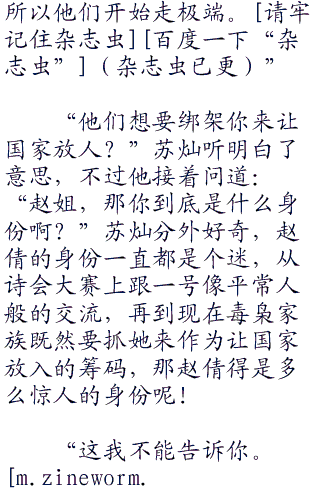 所以他们开始走极端。[请牢
记住杂志虫][百度一下“杂
志虫”]（杂志虫已更）”
“他们想要绑架你来让
国家放人？”苏灿听明白了
意思，不过他接着问道：
“赵姐，那你到底是什么身
份啊？”苏灿分外好奇，赵
倩的身份一直都是个迷，从
诗会大赛上跟一号像平常人
般的交流，再到现在毒枭家
族既然要抓她来作为让国家
放入的筹码，那赵倩得是多
么惊人的身份呢！
“这我不能告诉你。
[m.zineworm.